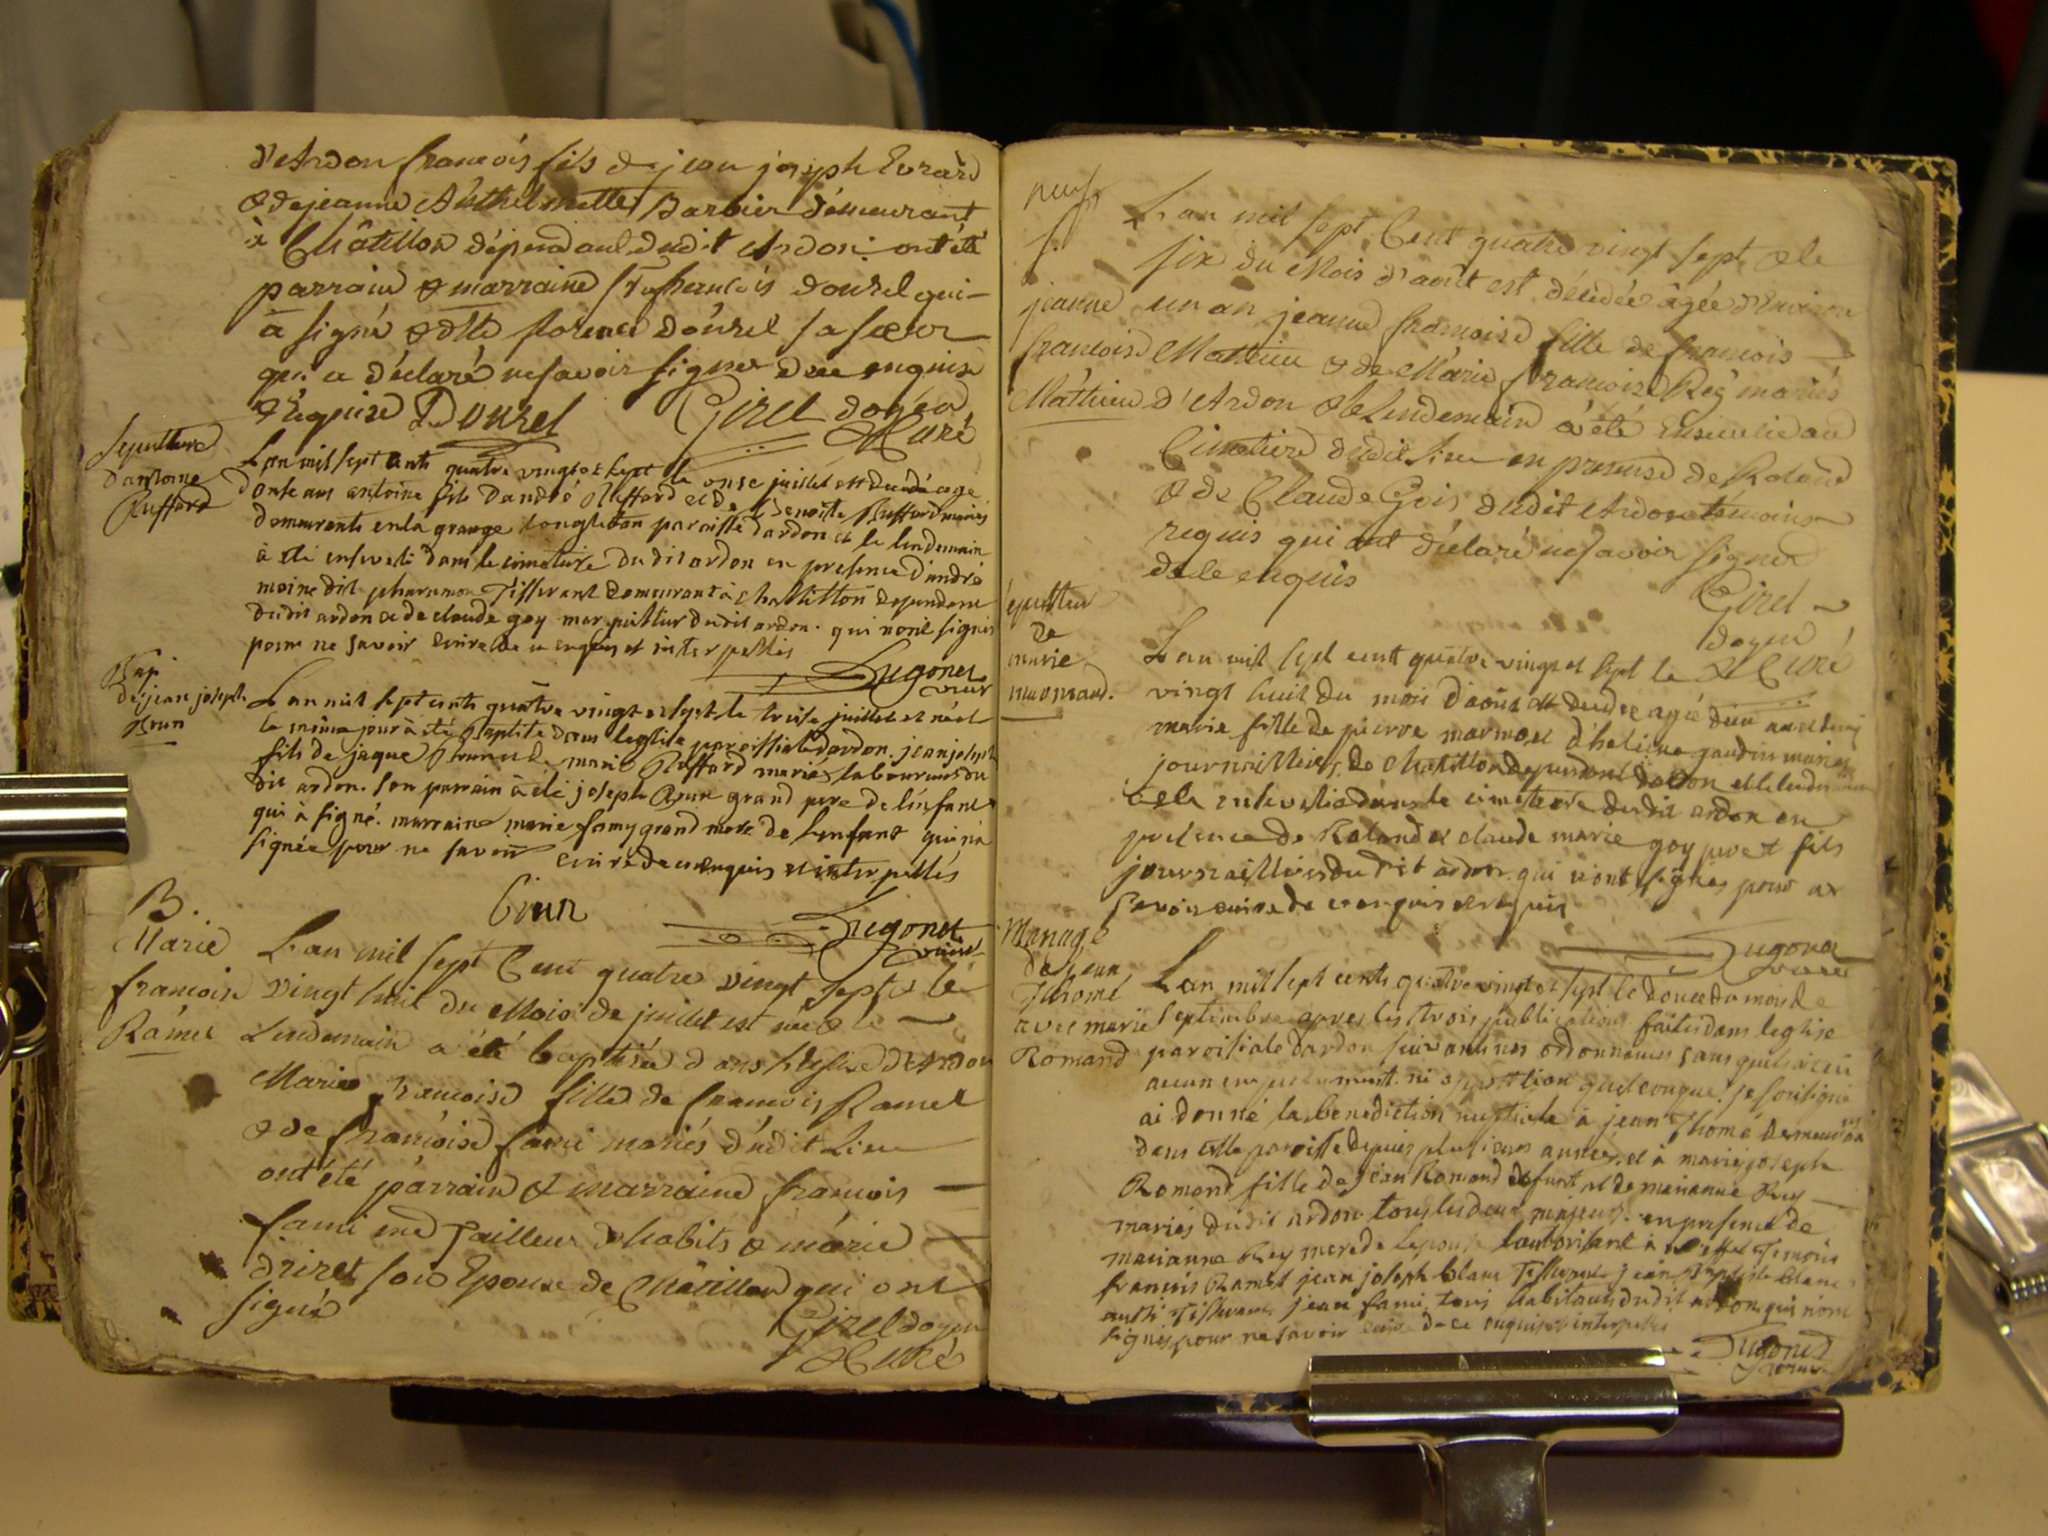 d'Ardon françois fils de jean joseph Evrard
& de jeanne Anthelmette Barbier demeurant
à Châtillon dépendant dudit Ardon ont été
parrain & marraine françois Douvel qui
à signé & dlle Dourel sa sœur
qui a déclaré ne savoir signer de ce enquise
& requise Dourel Girel doyen
& Curé
Sepulture
d'antoine
Ruffard
L'an mil sept cents quatre vingts et sept le onse juillet est decedé agé
d'onse ans antoine fils d'andré Ruffard et de Benoite Ruffard mariés
demeurants en la grange paroisse d'ardon et le lendemain
à été enseveli dans le cimetiere du dit ardon en presence d'andré
moine dit Tisserant demeurant à Chatillon dependant
du dit ardon et de claude goy du dit ardon qui n'ont signés
pour ne savoir écrire de ce enquis et interpellés
Lugonet
vicaire
Bap
de jean joseph
Brun
L'an mil sept cents quatre vingts et sept le treise juillet est né et
le même jour à été Baptisé dans l'eglise paroissiale d'ardon jean joseph
fils de jaque Brun et de marie Ruffard mariés laboureurs du
dit ardon. son parrain à été joseph Brun grand pere de l'enfant
qui à signé. marraine marie famy grand mere de l'enfant qui n'a
signée pour ne savoir écrire de ce enquis et interpellés
Brun
Lugonet
vicaire
B.
Marie
francoise
Ramel
L'an mil sept Cent quatre vingt sept & le
vingt huit du Mois de juillet est née & le
Lendemain a été baptisée dans l'Eglise d'Ardon
Marie francoise fille de francois Ramel
& de françoise famі mariés dudit Lieu
ont été parrain & marraine francois
fami me Tailleur d'habits & marie
son Epouse de Châtillon qui ont
signé
Girel doyen
& Curé
neuf
S.
jeanne
francoise
Mathieu
L'an mil sept Cent quatre vingt sept & le
six du Mois d'août est décédée âgée d'Environ
un an jeanne françoise fille de francois
Mathieu & de Marie francoise Rey mariés
d'Ardon & le Lendemain a été Ensevelie au
Cimetiere dudit Lieu en presence de Roland
& de Claude Goi dudit Ardon témoins
requis qui ont déclaré ne savoir signer
de ce enquis
Girel
doyen
& Curé
sepulture
de
marie
marmand.
L'an mil sept cents quatre vingts et sept le
vingt huit du mois d'aoust est decedée agée d'un an et demi
marie fille de pierre marmand et d'helene gaudin mariés
journailliers de Chatillon dependant d'ardon et le lendemain
à été ensevelie dans le cimetiere du dit ardon en
presence de Roland et claude marie goy pere et fils
journailliers du dit ardon qui n'ont signés pour ne
savoir écrire de ce enquis et requis
Lugonet
vicaire
Mariage
de jean
Thomé
avec marie
Romand
L'an mil sept cents quatre vingt et sept le douse du mois de
septembre apres les trois publications faites dans l'eglise
paroissiale d'ardon suivant nos ordonnances sans qu'il y ait eu
aucun empechement ni opposition quelconque. je soussigné
ai donné la benediction nuptiale à jean Thomé demeurant
dans cette paroisse depuis plusieurs années. et à marie joseph
Romand fille de jean Romand defunt et de marianne Rey
mariés du dit ardon tous les deux majeurs. en presence de
marianne Rey mere de l'epouse l'autorisant à cet effet Temoins
francois Ramel jean joseph blanc Tisserant jean Baptiste blanc
aussi Tisserant jean fami tous habitans du dit ardon qui n'ont
signés pour ne savoir écrire de ce enquis et interpellés
Lugonet
vicaire